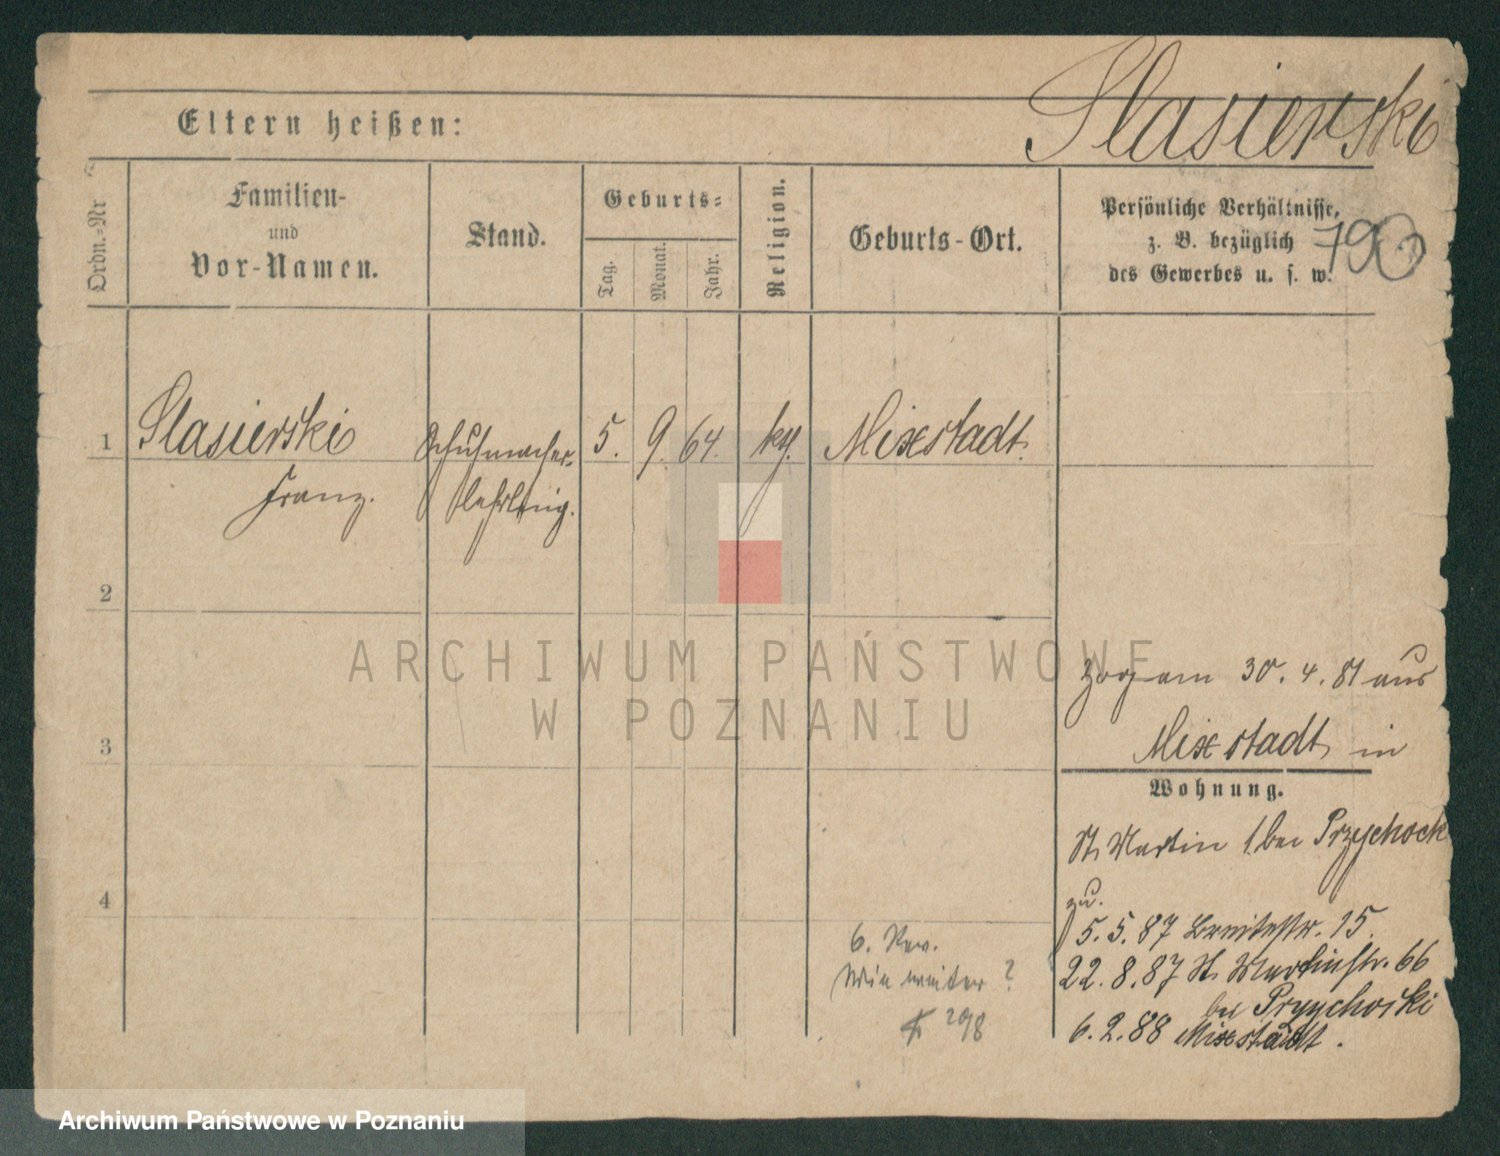 Slasierski
Eltern heißen:
790
Ordn.-Nr
Familien-
und
Vor-Namen.
Stand.
Geburts-
Tag.
Monat.
Jahr.
Religion.
Geburts-Ort.
Persönliche Verhältnisse,
z. B. bezüglich
des Gewerbes u. s. w.
1 Slasierski Schuhmacher- 5. 9. 64. kth. Mixstadt.
Franz. lehrling.
2
ARCHIWUM PAŃSTWOWE
W POZNANIU
zog am 30. 4. 81 aus
Mixstadt in
3
Wohnung.
St. Martin 1. bei Przychock
zu.
4
5. 5. 87 Breitestr. 15.
22. 8. 87 St. Martinstr. 66
bei Przychoski
6. 2. 88 Mixstadt.
6. Rev.
Wie weiter?
298
Archiwum Państwowe w Poznaniu